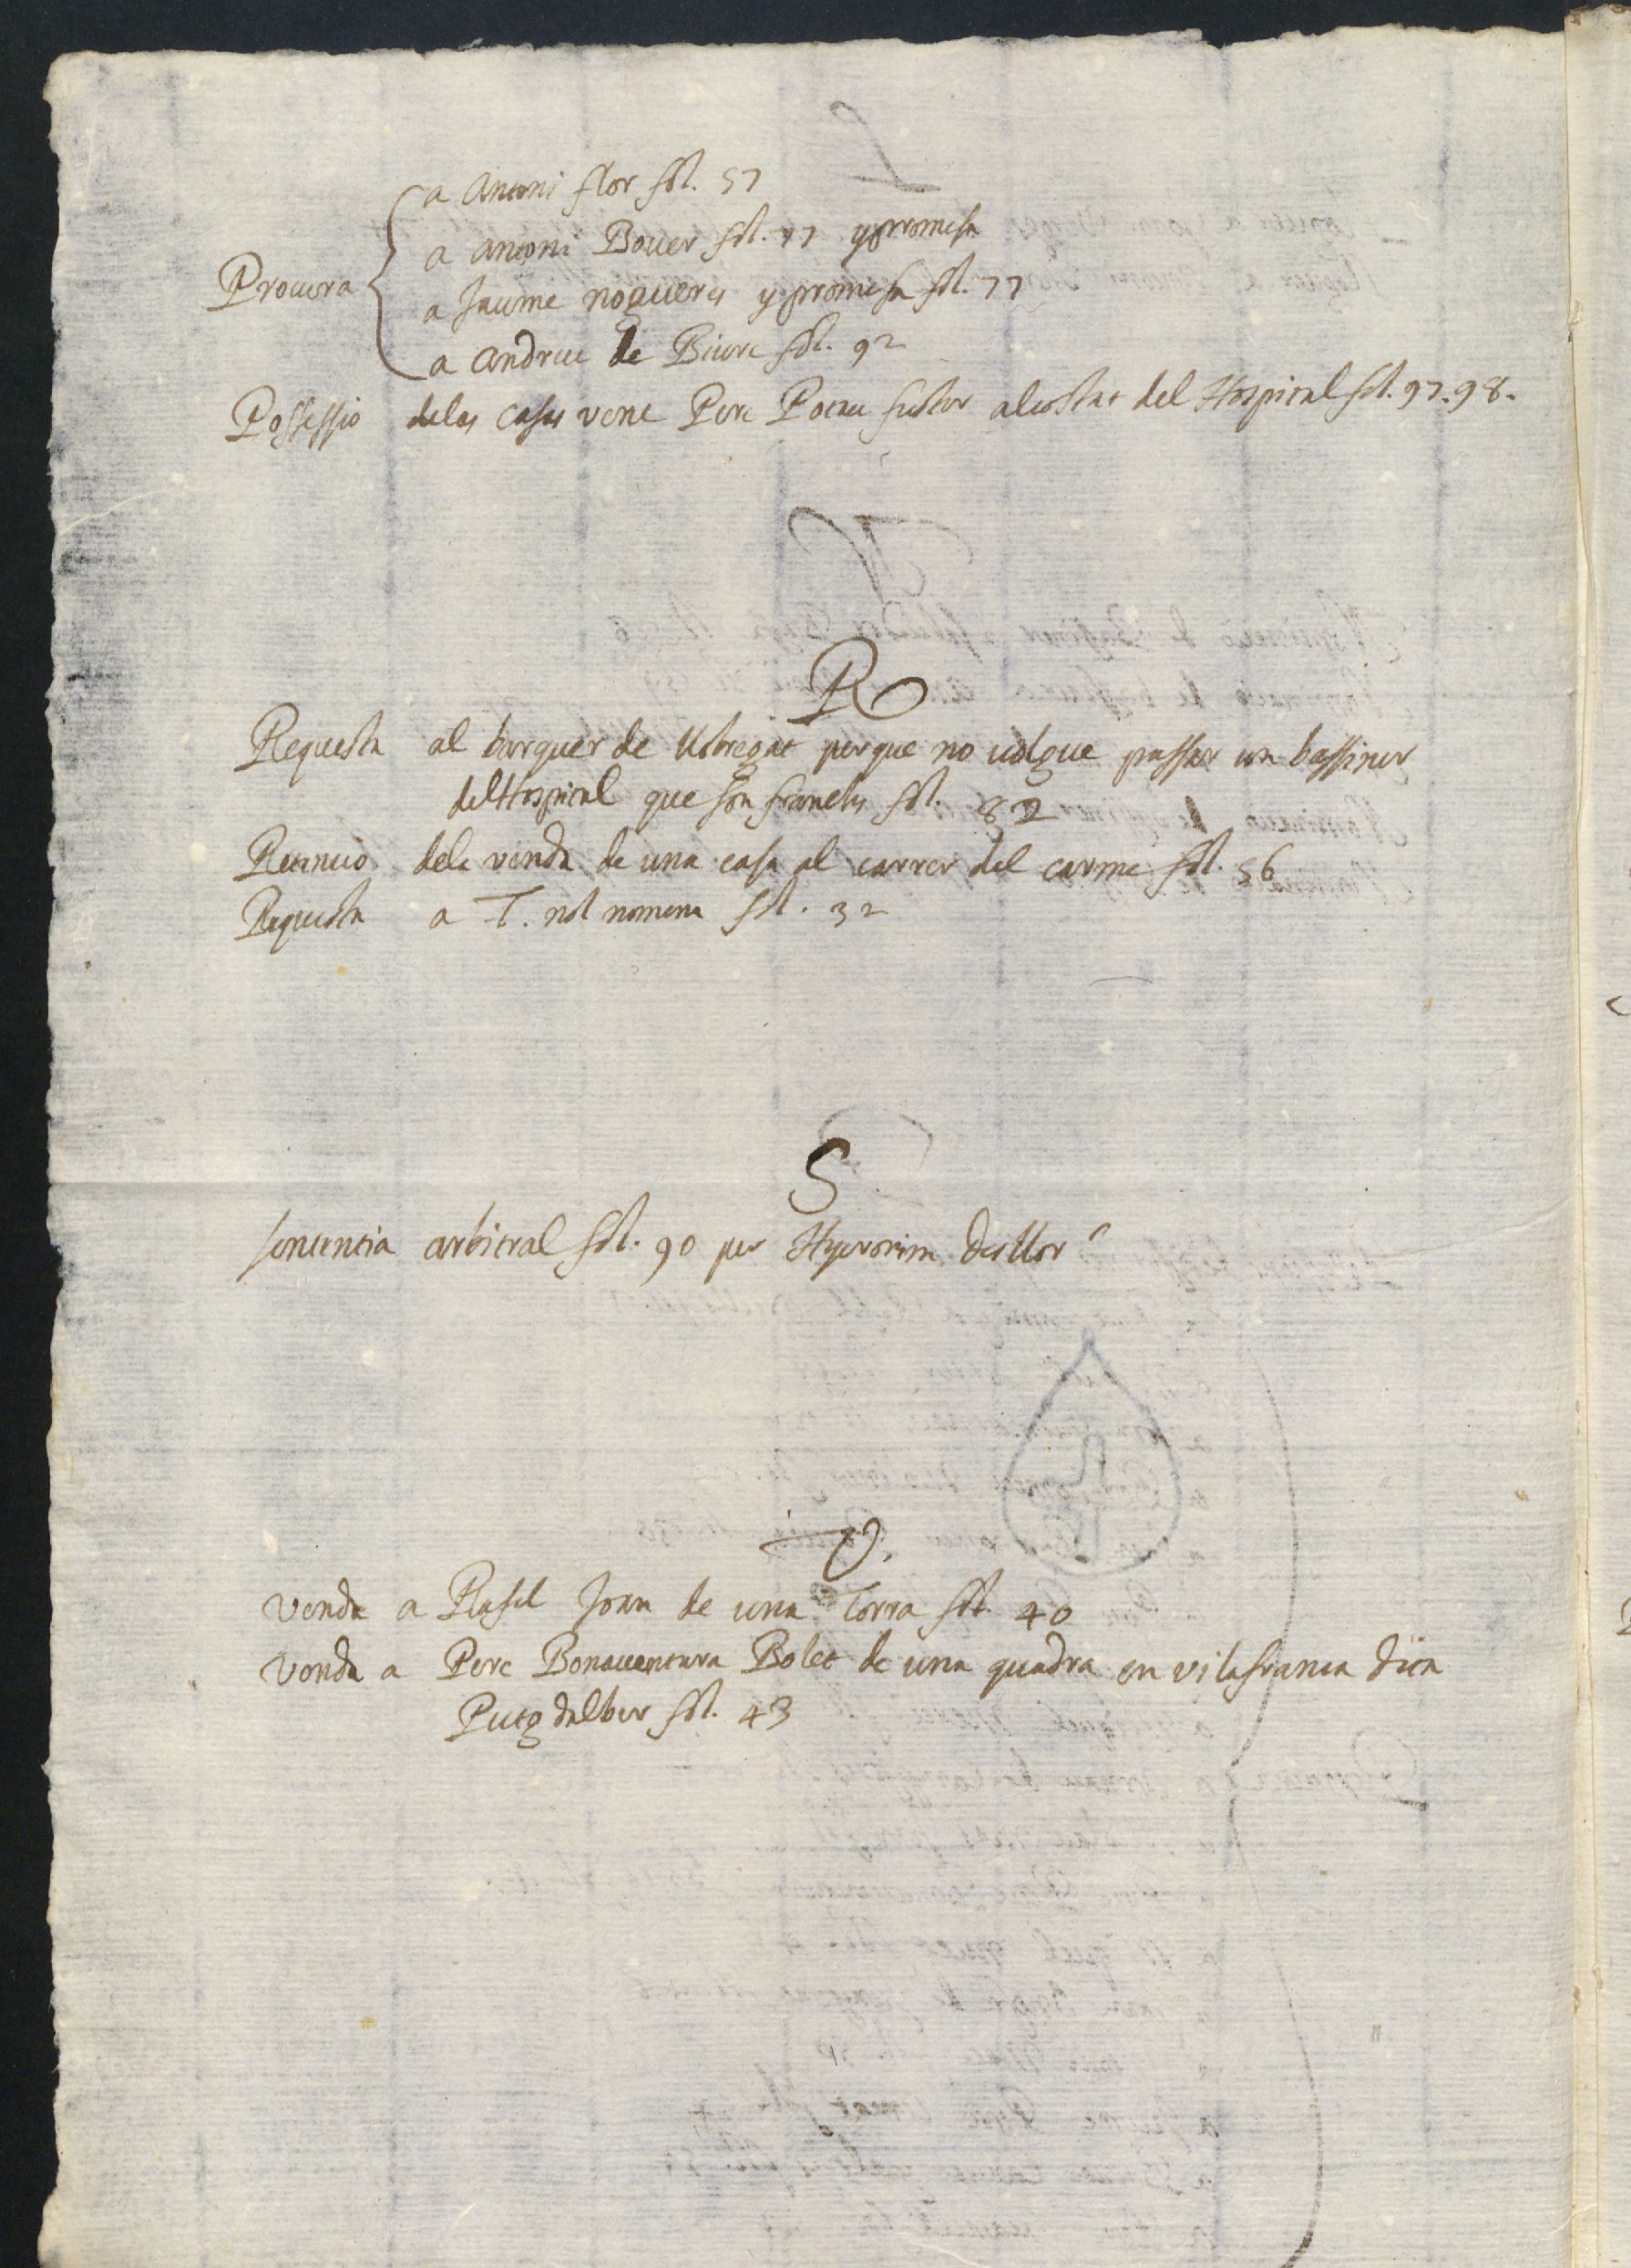 a Antoni flor fol. 57
a Antoni Bover fol. 77 y promesa
Procura
a Jaume nogueres y promesa fol. 77
a Andreu de Biure fol. 92
Possessio delas casas vene Pere Potau fuster al costat del Hospital fol. 97. 98.
R
Requesta al barquer de llobregat perque no volgue passar un bassiner
del Hospital que son franchs fol. 82
dela venda de una casa al carrer del carme fol. 56
Requesta a T. nol nomena fol. 32
S
sentencia arbitral fol. 90 per Hyeronim desllor
V.
Venda a Rafel Joan de una Torra fol. 40
Venda a Pere Bonaventura Bolet de una quadra en vilafranca dita
Puigdalber fol. 43